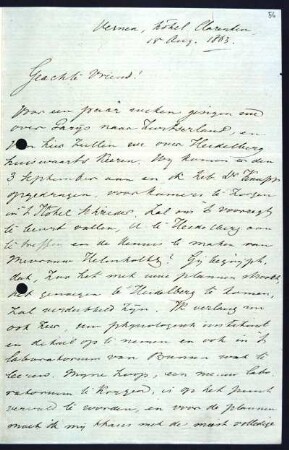 56
Vernex, Hôtel Clarentin,
18 Aug. 1863.
Geachte Vriend!
Voor een paar weken gingen we
over Parijs naar Zwitserland, en
van hier zullen we over Heidelberg
huiswaarts keeren. Wij komen er den
3 September aan en ik heb Dr
opgedragen, voor kamers te zorgen
in 't Hôtel Schrieder. Zal ons 't voorregt
te beurt vallen, U te Heidelberg aan
te treffen en de kennis te maken van
Mevrouw Helmholtz? Gij begrijpt,
dat, zoo het met uwe plannen strookt,
het genoegen te Heidelberg te komen,
zal verdubbeld zijn. Ik verlang nu
ook zeer, uw physiologisch instituut
in
laboratorium van Bunsen wat te
leeren. Mijne hoop, een nieuw labo-
ratorium te krijgen, is op het punt
verwezenlijkt te worden, en voor de plannen
moet ik mij thans met de meest volledige